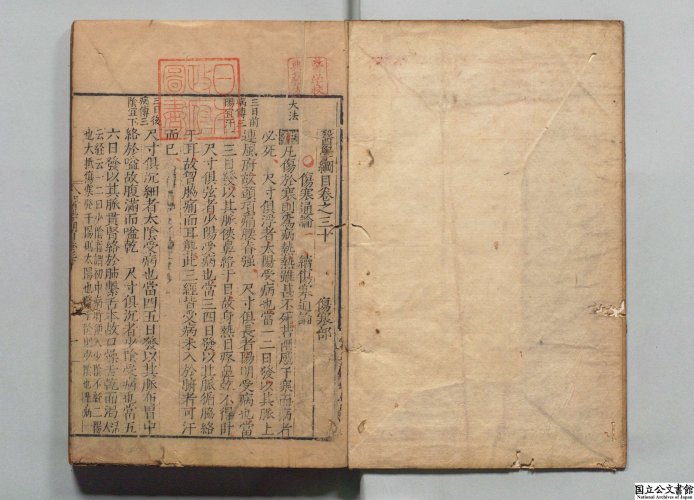 醫學綱目卷之三十　傷寒部
傷寒通論　續傷寒通論
大法
凡傷於寒則爲病熱熱雖甚不死若兩感于寒而病者
必死　尺寸俱浮者太陽受病也當一二日發以其脈上
三日前
病傳三
陽宜汗
連風府故頭項痛腰脊强　尺寸俱長者陽明受病也當二
三日發以其脈俠鼻絡于目故身熱目疼鼻乾不得臥
尺寸俱弦者少陽受病也當三四日發以其脈循脇絡
于耳故胷脇痛而耳聾此三經皆受病未入於腑者可汗
而已
三日後
病傳三
陰宜下
尺寸俱沉細者太陰受病也當四五日發以其脈布胃中
絡於嗌故腹滿而嗌乾　尺寸俱沉者少陰受病也當五
六日發以其脈貫腎絡於肺繫舌本故口燥舌乾而渴
日本
政府
圖書
国立公文書館
National Archives of Japan